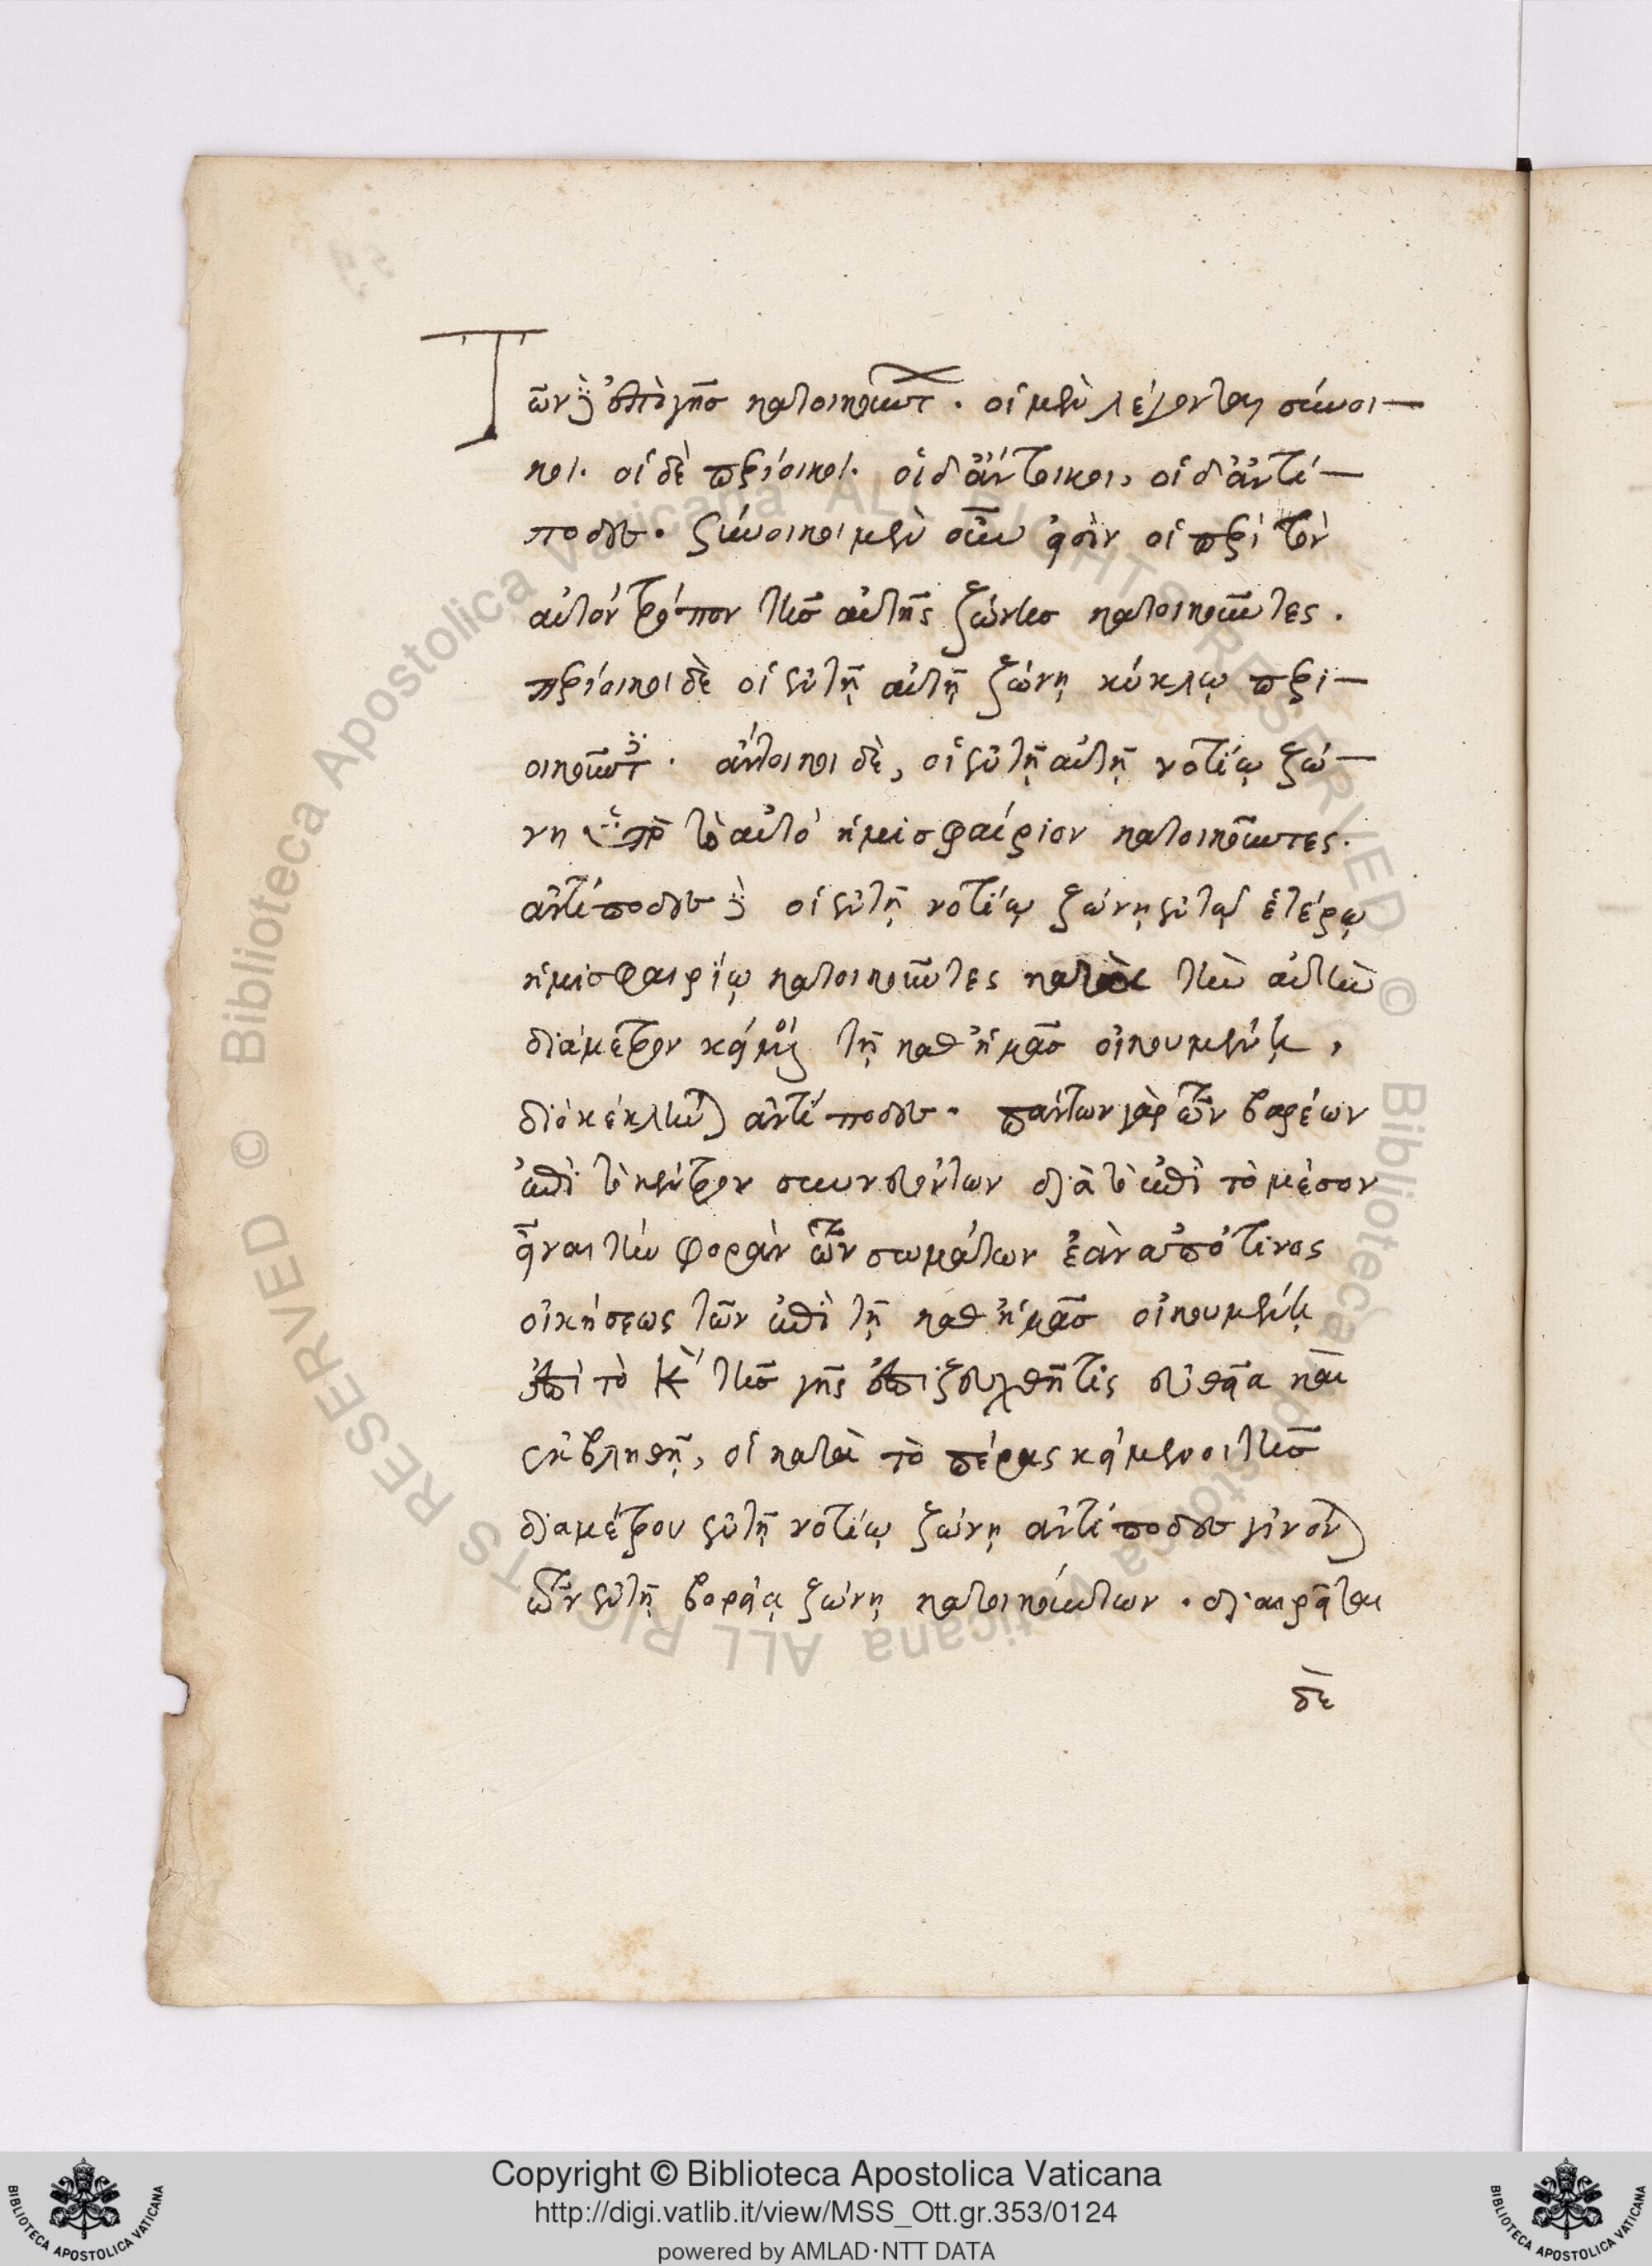 Τῶν δὲ ἐπὶ γῆς κατοικούντων. οἱ μὲν λέγονται σύνοι-
κοι. οἱ δὲ περίοικοι. οἱ δ' ἄντοικοι, οἱ δ' ἀντί-
ποδες. σύνοικοι μὲν οὖν εἰσὶν οἱ περὶ τὸν
αὐτὸν τρόπον τῆς αὐτῆς ζώνης κατοικοῦντες.
περίοικοι δὲ οἱ ἐν τῇ αὐτῇ ζώνῃ κύκλῳ περι-
οικοῦντες. ἄντοικοι δὲ, οἱ ἐν τῇ αὐτῇ νοτίῳ ζώ-
νῃ ὑπὸ τὸ αὐτὸ ἡμισφαίριον κατοικοῦντες.
ἀντίποδες δὲ οἱ ἐν τῇ νοτίῳ ζώνῃ ἐν τῷ ἑτέρῳ
ἡμισφαιρίῳ κατοικοῦντες κατὰ τὴν αὐτὴν
διάμετρον κείμενοι τῇ καθ' ἡμᾶς οἰκουμένῃ,
διὸ κέκληνται ἀντίποδες. πάντων γὰρ τῶν βαρέων
ἐπὶ τὸ κέντρον συννευόντων διὰ τὸ ἐπὶ τὸ μέσον
εἶναι τὴν φορὰν τῶν σωμάτων ἐὰν ἀπό τινος
οἰκήσεως τῶν ἐπὶ τῇ καθ' ἡμᾶς οἰκουμένῃ
ἐπὶ τὸ κέντρον τῆς γῆς ἐπιζευχθῇ τις εὐθεῖα καὶ
ἐκβληθῇ, οἱ κατὰ τὸ πέρας κείμενοι τῆς
διαμέτρου ἐν τῇ νοτίῳ ζώνῃ ἀντίποδες γίνονται
τῶν ἐν τῇ βορείᾳ ζώνῃ κατοικούντων. διαιρεῖται
δὲ
Copyright © Biblioteca Apostolica Vaticana
http://digi.vatlib.it/view/MSS_Ott.gr.353/0124
powered by AMLAD·NTT DATA